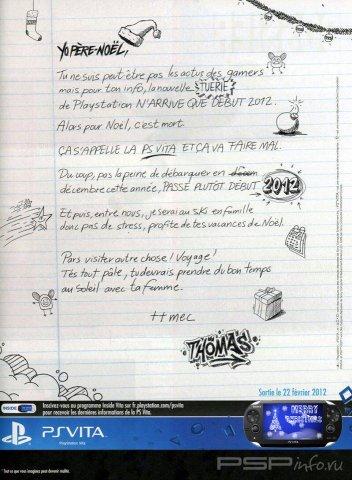 YO PÈRE-NOËL,
Tu ne suis peut-être pas les actus des gamers
mais pour ton info, la nouvelle TUERIE
de Playstation N'ARRIVE QUE DEBUT 2012.
Alors pour Noël, c'est mort.
ÇA S'APPELLE LA PS VITA ET ÇA VA FAIRE MAL.
Du coup, pas la peine de débarquer en
décembre cette année, PASSE PLUTÔT DÉBUT 2012
Et puis, entre nous, je serai au ski en famille
donc pas de stress, profite de tes vacances de Noël.
Pars visiter autre chose! Voyage!
T'es tout pâle, tu devrais prendre du bon temps
au soleil avec ta femme.
++ mec
THOMAS
Sortie le 22 février 2012
INSIDE
Inscrivez-vous au programme Inside Vita sur fr.playstation.com/psvita
pour recevoir les dernières informations de la PS Vita.
PSVITA
PlayStation Vita
MERRY
CHRISTMAS
"Tout ce que vous imaginez peut devenir réalité.
PSPinfo.ru